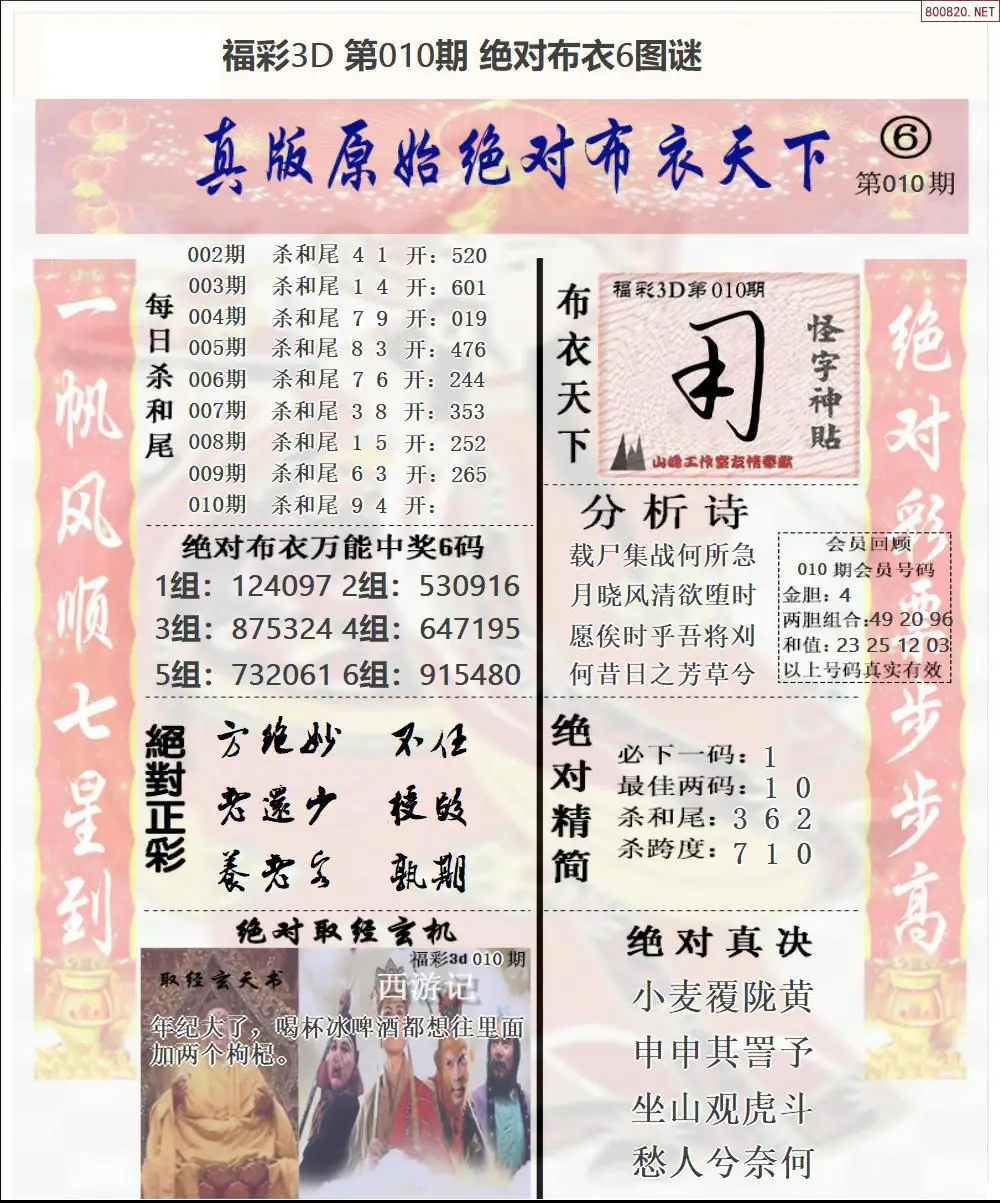 800820.NET
福彩3D 第010期 绝对布衣6图谜
真版原始绝对布衣天下
6
第010期
一帆风顺七星到
每日杀和尾
002期 杀和尾 4 1 开：520
003期 杀和尾 1 4 开：601
004期 杀和尾 7 9 开：019
005期 杀和尾 8 3 开：476
006期 杀和尾 7 6 开：244
007期 杀和尾 3 8 开：353
008期 杀和尾 1 5 开：252
009期 杀和尾 6 3 开：265
010期 杀和尾 9 4 开：
绝对布衣万能中奖6码
1组：124097 2组：530916
3组：875324 4组：647195
5组：732061 6组：915480
絕對正彩
方绝妙 不任
老還少
養老 期
绝对取经玄机
福彩3d 010 期
取经玄天书
西游记
年纪大了，喝杯冰啤酒都想往里面
加两个枸杞。
布衣天下
福彩3D第010期
怪字神貼
山峰工作室友情奉献
分析诗
载尸集战何所急
月晓风清欲堕时
愿俟时乎吾将刈
何昔日之芳草兮
会员回顾
010 期会员号码
金胆：4
两胆组合:49 20 96
和值：23 25 12 03
以上号码真实有效
绝对精简
必下一码：1
最佳两码：1 0
杀和尾：3 6 2
杀跨度：7 1 0
绝对真决
小麦覆陇黄
申申其詈予
坐山观虎斗
愁人兮奈何
绝对彩票步步高